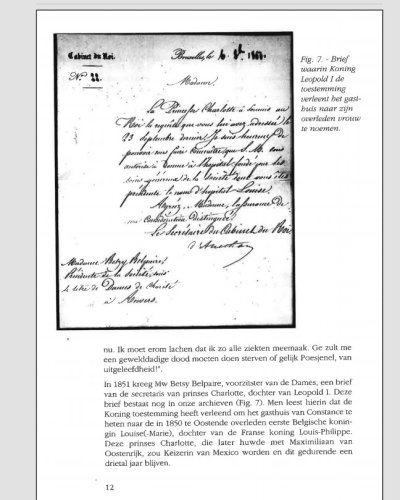 Cabinet du Roi.
Bruxelles, le 8bre
N.º 22.
Madame,
La Princesse Charlotte a soumis au
Roi la requête que vous lui avez adressée le
23 septembre dernier. Je suis heureux de
pouvoir vous faire connaître que S. M. vous
autorise à donner à l'hospital fondé par les
soins généreux de la Société dont vous êtes
présidente le nom d'hospital Louise.
Agréez, Madame, l'assurance de
ma considération distinguée.
Le Secrétaire du Cabinet du Roi
Madame Betsy Belpaire,
Présidente de la Société, sous
le titre de Dames de Charité
à Anvers.
Fig. 7. - Brief
waarin Koning
Leopold I de
toestemming
verleent het gast-
huis naar zijn
overleden vrouw
te noemen.
nu. Ik moet erom lachen dat ik zo alle ziekten meemaak. Ge zult me
een gewelddadige dood moeten doen sterven of gelijk Poesjenel, van
uitgeleefdheid!".
In 1851 kreeg Mw Betsy Belpaire, voorzitster van de Dames, een brief
van de secretaris van prinses Charlotte, dochter van Leopold I. Deze
brief bestaat nog in onze archieven (Fig. 7). Men leest hierin dat de
Koning toestemming heeft verleend om het gasthuis van Constance te
heten naar de in 1850 te Oostende overleden eerste Belgische konin-
gin Louise(-Marie), dochter van de Franse koning Louis-Philippe.
Deze prinses Charlotte, die later huwde met Maximiliaan van
Oostenrijk, zou Keizerin van Mexico worden en dit gedurende een
drietal jaar blijven.
12